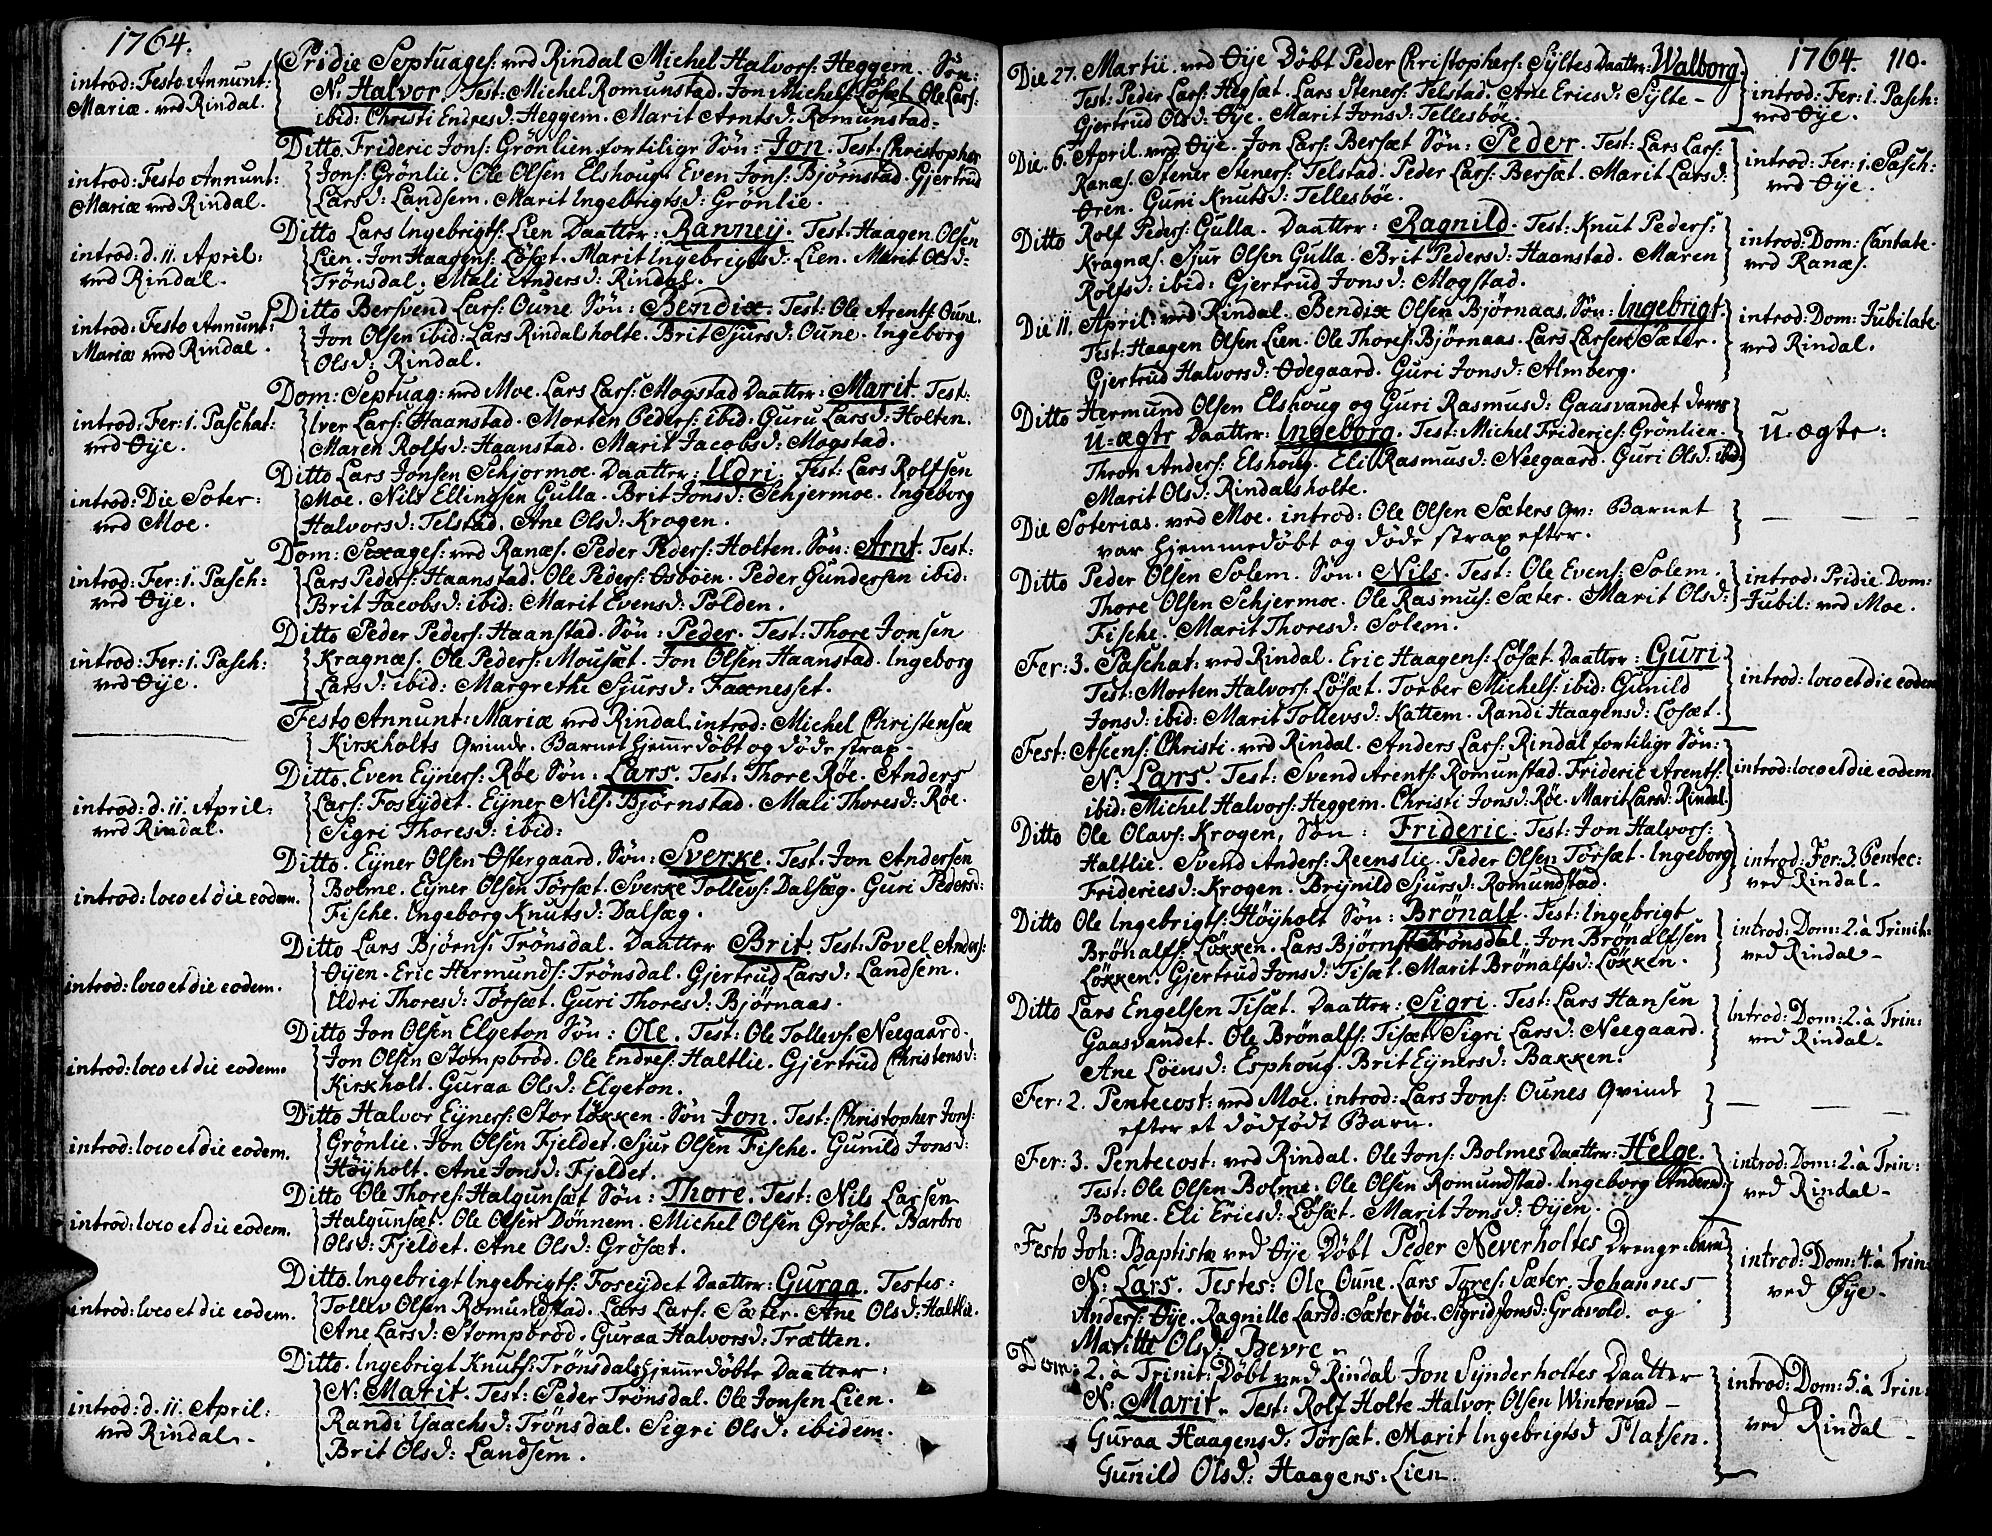 1764.
introd: Festo Annunt:
Mariæ. ved Rindal.
Pridie Septuages: ved Rindal Michel Halvors: Heggem. Søn:
N: Halvor. Test: Michel Romunstad. Jon Michels: Løsæt. Ole Lars:
ibid: Christi Endresd: Heggem. Marit Arntsd: Romunstad.
introd: Festo Annunt:
Mariæ ved Rindal.
Ditto. Frideric Jons: Grönlien fortilige Søn: Jon. Test: Christopher
Jons: Grönlie. Ole Olsen Elshoug. Even Jons: Björnstad. Gjertrud
Larsd: Landsem. Marit Ingebrigtsd: Grönlie.
introd: d. 11. April:
ved Rindal.
Ditto Lars Ingebrigts: Lien Daatter: Ranney. Test: Haagen Olsen
Lien. Jon Haagens: Løsæt. Marit Ingebrigtsd: Lien. Marit Olsd:
Trönsdal. Mali Andersd: Rindal.
introd: Festo Annunt:
Mariæ ved Rindal.
Ditto Bersvend Lars: Oune Søn: Bendix. Test: Ole Arents: Oune.
Jon Olsen ibid: Lars Rindalsholte. Brit Sjursd: Oune. Ingeborg
Olsd: Rindal.
introd: Fer: 1. Paschat:
ved Øye.
Dom: Septuag: ved Moe. Lars Lars: Mogstad Daatter: Marit. Test:
Iver Lars: Haanstad. Morten Peders: ibid: Guru Larsd: Holten.
Maren Rolfsd: Haanstad. Marit Jacobsd: Mogstad.
introd: Die Soter:
ved Moe.
Ditto Lars Jonsen Schjermoe. Daatter: Udri. Test: Lars Rolfsen
Moe. Nils Ellingsen Gulla. Brit Jonsd: Schjermoe. Ingeborg
Halvorsd: Telstad. Ane Olsd: Krogen.
introd: Fer: 1. Pasch:
ved Øye.
Dom: Sexages: ved Ranæs. Peder Peders: Holten. Søn: Arnt. Test:
Lars Peders: Haanstad. Ole Peders: Osböen. Peder Gundersen ibid:
Brit Jacobsd: ibid: Marit Evensd: Polden.
introd: Fer: 1. Pasch:
ved Øye.
Ditto Peder Peders: Haanstad. Søn: Peder. Test: Thore Jonsen
Kragnæs. Ole Peders: Mousæt. Jon Olsen Haanstad. Ingeborg
Larsd: ibid: Margrethe Sjursd: Faxnesset.
Festo Annunt: Mariæ ved Rindal. introd: Michel Christensen
Kirkholts Qvinde. Barnet hjemedöbt og döde strax.
introd: d. 11. April:
ved Rindal.
Ditto. Even Eyners: Röe Søn: Lars. Test: Thore Röe. Anders
Lars: Foseydet. Eyner Nils: Björnstad. Mali Thoresd: Röe.
Sigri Thoresd: ibid:
introd: loco et die eodem.
Ditto. Eyner Olsen Ostergaard. Søn: Sverke. Test: Jon Andersen
Bolme. Eyner Olsen Törsæt. Sverke Tollevs: Dalsæg. Guri Pedersd:
Fische. Ingeborg Knutsd: Dalsæg.
introd: loco et die eodem.
Ditto Lars Björns: Trönsdal. Daatter Brit. Test: Povel Anders:
Öyen. Eric Hermunds: Trönsdal. Gjertrud Larsd: Landsem.
Udri Thoresd: Törsæt. Guri Thoresd: Björnaas.
introd: loco et die eodem.
Ditto Jon Olsen Elgeton Søn: Ole. Test: Ole Tollevs: Neegaard.
Jon Olsen Stompbrod. Ole Endres: Haltlie. Gjertrud Christensd:
Kirkholt. Guraa Olsd: Elgeton.
introd: loco et die eodem.
Ditto Halvor Eyners: Storløkken. Søn Jon. Test: Christopher Jons:
Grönlie. Jon Olsen Fjeldet. Sjur Olsen Fische. Gunild Jonsd:
Höyholt. Ane Jonsd: Fjeldet.
introd: loco et die eodem.
Ditto Ole Thores: Halgunsæt Søn: Thore. Test: Nils Larsen
Halgunsæt. Ole Olsen Dönnem. Michel Olsen Grösæt. Barbro
Olsd: Fjeldet. Ane Olsd: Grösæt.
introd: loco et die eodem.
Ditto. Ingebrigt Ingebrigts: Foseydet Daatter: Guraa. Testes:
Tollev Olsen Romundstad. Lars Lars: Sæter. Ane Olsd: Haltlie.
Ane Larsd: Stompbrod. Guraa Halvorsd: Trætten.
introd: d. 11. April:
ved Rindal.
Ditto. Ingebrigt Knuts: Trönsdals hjemedöbte Daatter:
N: Marit. Test: Peder Trönsdal. Ole Jonsen Lien.
Randi Isaachsd: Trönsdal. Sigri Olsd: ibidem.
Brit Olsd: Landsem.
1764. 110.
Die 27. Martii ved Øye Döbt Peder Christophers: Syltes Daatter: Walborg.
Test: Peder Lars: Hegsæt. Lars Steners: Telstad. Ane Ericsd: Sylte.
Gjertrud Olsd: Øye. Marit Jonsd: Tellesböe.
introd: Fer: 1. Pasch:
ved Øye.
Die. 6. April. ved Øye. Jon Lars: Bersæt Søn: Peder. Test: Lars Lars:
Ranæs. Stener Steners: Telstad. Peder Lars: Bersæt. Marit Larsd:
Oren. Guri Knutsd: Tellesböe.
introd: Fer: 1. Pasch:
ved Øye.
Ditto Rolf Peders: Gulla. Daatter: Ragnild. Test: Knut Peders:
Kragnæs. Sjur Olsen Gulla. Brit Pedersd: Haanstad. Maren
Rolfsd: ibid: Gjertrud Jonsd: Mogstad.
introd: Dom: Cantate.
ved Ranæs.
Die 11. April: ved Rindal. Bendix Olsen Björnaas. Søn: Ingebrigt.
Test: Haagen Olsen Lien. Ole Thores: Björnaas. Lars Larsen Sæter.
Gjertrud Halvorsd: Ødegaard. Guri Jonsd: Almberg.
introd: Dom: Jubilate.
ved Rindal.
Ditto Hermund Olsen Elshoug og Guri Rasmusd: Gaasvandet deres
u-ægte Daatter: Ingeborg. Test: Michel Friderics: Grönlien.
Thron Anders: Elshoug. Eli Rasmusd: Neegaard. Guri Olsd: ibid
Marit Olsd: Rindalsholte.
u-ægte:
Die Soterias. ved Moe. introd: Ole Olsen Sæters Qv: Barnet
var hjemmedöbt og döde strax efter.
Ditto Peder Olsen Solem. Søn: Nils. Test: Ole Evens: Solem.
Thore Olsen Schjermoe. Ole Rasmus: Sæter. Marit Olsd:
Fische. Marit Thoresd: Solem.
introd: Pridie Dom:
Jubil: ved Moe.
Fer: 3. Paschat: ved Rindal. Eric Haagens: Løsæt. Daatter: Guri
Test: Morten Halvors: Løsæt. Torber Michels: ibid: Gunild
Jonsd: ibid: Marit Tollevsd: Kattem. Randi Haagensd: Løsæt.
introd: loco et die eodem
Fest: Ascens: Christi. ved Rindal. Anders Lars: Rindal fortilige Søn:
N: Lars. Test: Svend Arents: Romunstad. Frideric Arents:
ibid: Michel Halvors: Heggem. Christi Jonsd: Röe. Marit Larsd: Rindal.
introd: loco et die eodem
Ditto Ole Olavs: Krogen, Søn: Frideric. Test: Jon Halvors:
Haltlie. Svend Anders: Reenslie. Peder Olsen Törsæt. Ingeborg
Fridericsd: Krogen. Brynild Sjursd: Romundstad.
introd: Fer: 3. Pentec:
ved Rindal.
Ditto Ole Ingebrigts: Höyholt Søn: Brönalf. Test: Ingebrigt
Brönalfs: Løkken. Lars Björns: Trönsdal. Jon Brönalfsen
Løkken. Gjertrud Jonsd: Tisæt. Marit Brönalfsd: Løkken.
introd: Dom: 2. à Trinit:
ved Rindal.
Ditto Lars Engelsen Tisæt. Daatter: Sigri. Test: Lars Hansen
Gaasvandet. Ole Brönalfs: Tisæt. Sigri Larsd: Neegaard.
Ane Löensd: Esphoug. Brit Eynersd: Bakken.
introd: Dom: 2. à Trin:
ved Rindal.
Fer: 2. Pentecost: ved Moe. introd: Lars Jons: Ounes Qvinde
efter et dödfödt Barn.
Fer: 3. Pentecost: ved Rindal. Ole Jons: Bolmes Daatter: Helge.
Test: Ole Olsen Bolme. Ole Olsen Romundstad. Ingeborg Andersd:
Bolme. Eli Ericsd: Løsæt. Marit Jonsd: Öyen.
introd: Dom: 2. à Trin:
ved Rindal.
Festo Joh: Baptistæ ved Øye Döbt Peder Neverholtes Drengebarn
N: Lars. Testes: Ole Oune. Lars Tores: Sæter. Johannes
Anders: Øye. Ragnille Larsd: Sæterböe. Sigrid Jonsd: Gravold. og
Maritte Olsd: Bevre.
introd: Dom: 4. à Trin:
ved Øye.
Dom: 2. à Trinit: Döbt ved Rindal Jon Synderholtes Daatter
N: Marit. Test: Rolf Holte. Halvor Olsen Wintervad
Guraa Haagensd: Törsæt. Marit Ingebrigtsd Platsen.
Gunild Olsd: Haagens: Lien.
introd: Dom: 5. à Trin:
ved Rindal